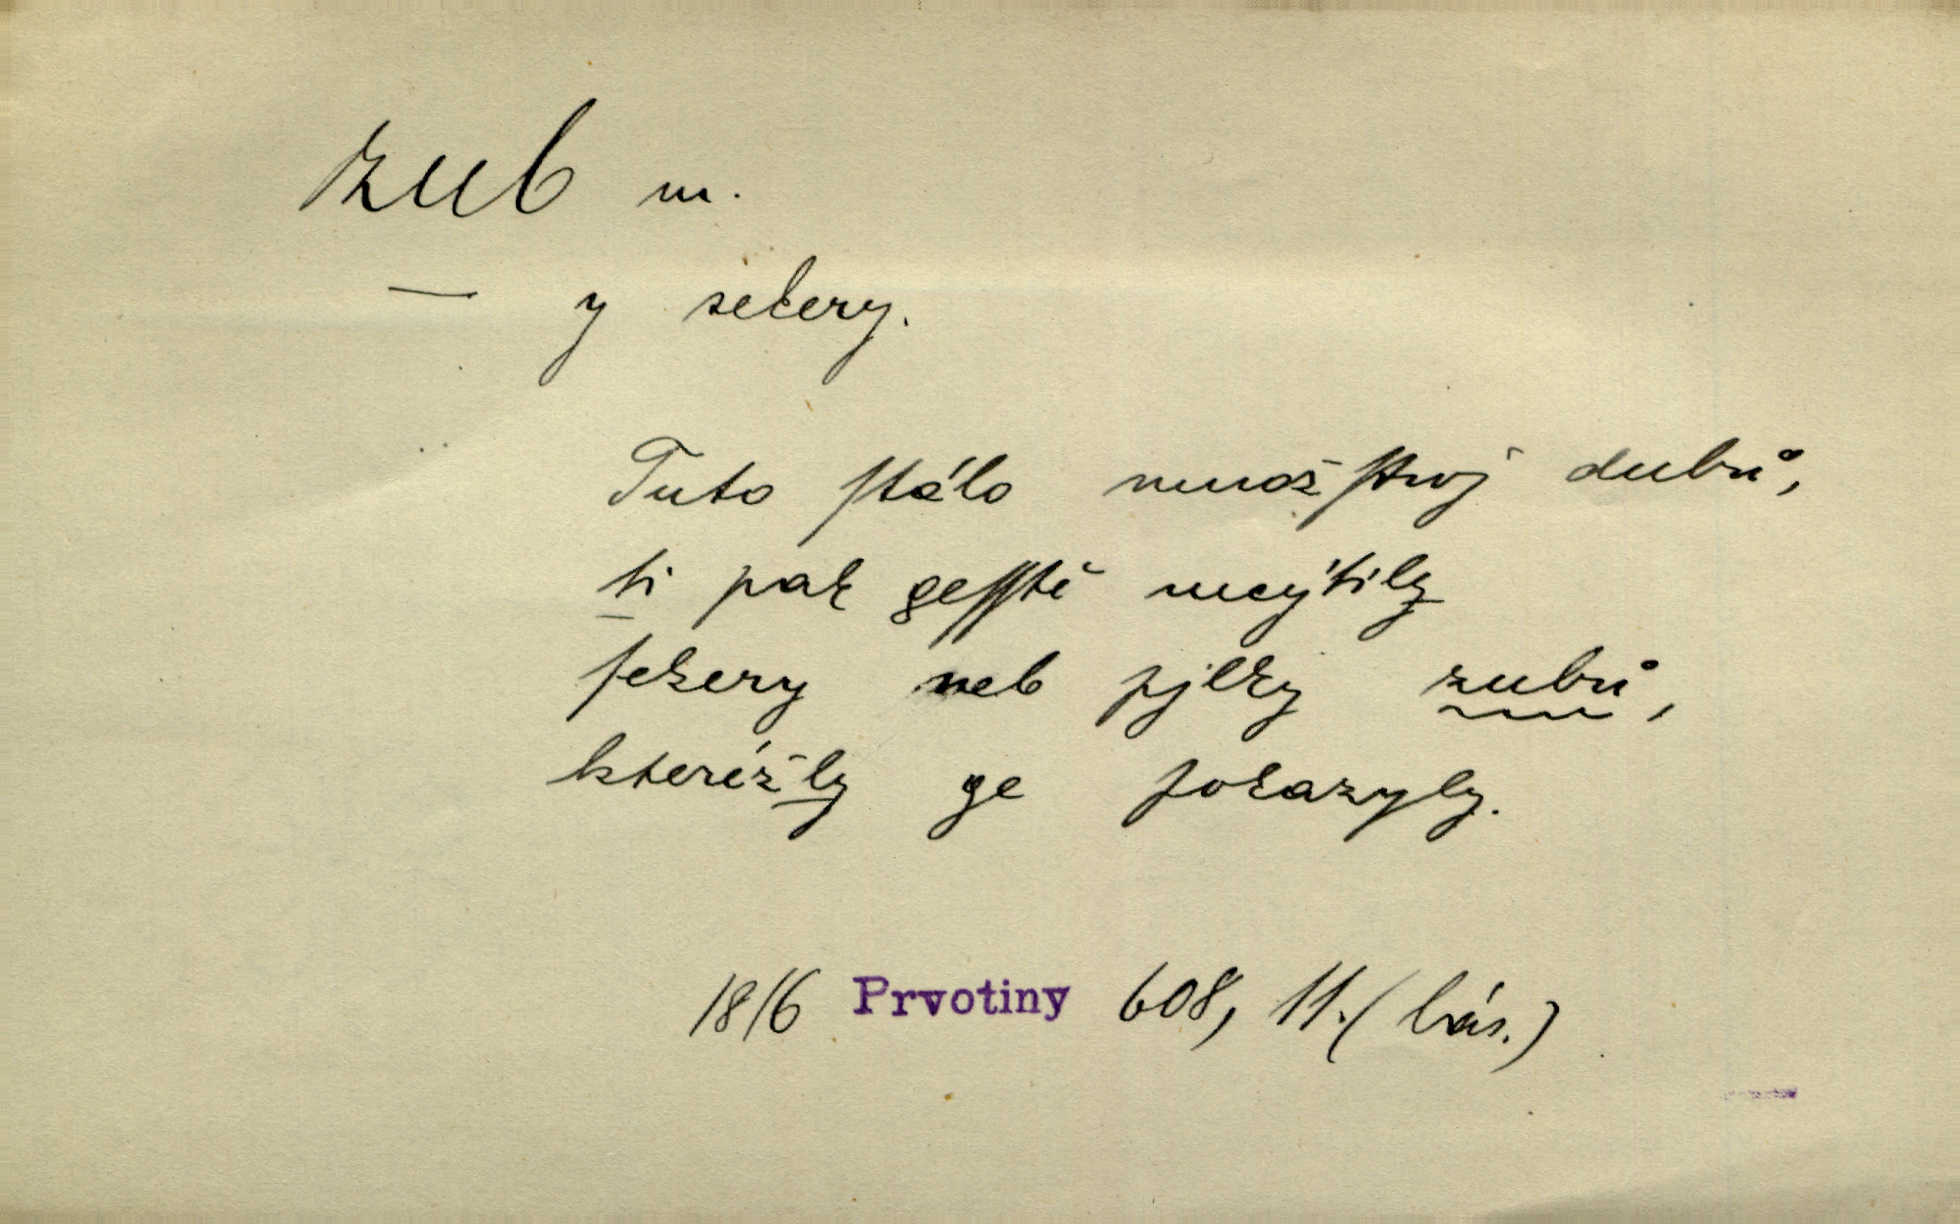 zub m.
— y sekery.
Tuto ſtálo množſtwj dubů,
ti pak geſſtě meýtily
ſekery neb pjlky zubů,
kteréžly ge ſokazyly.
1816 Prvotiny 608, 11. (bás.)